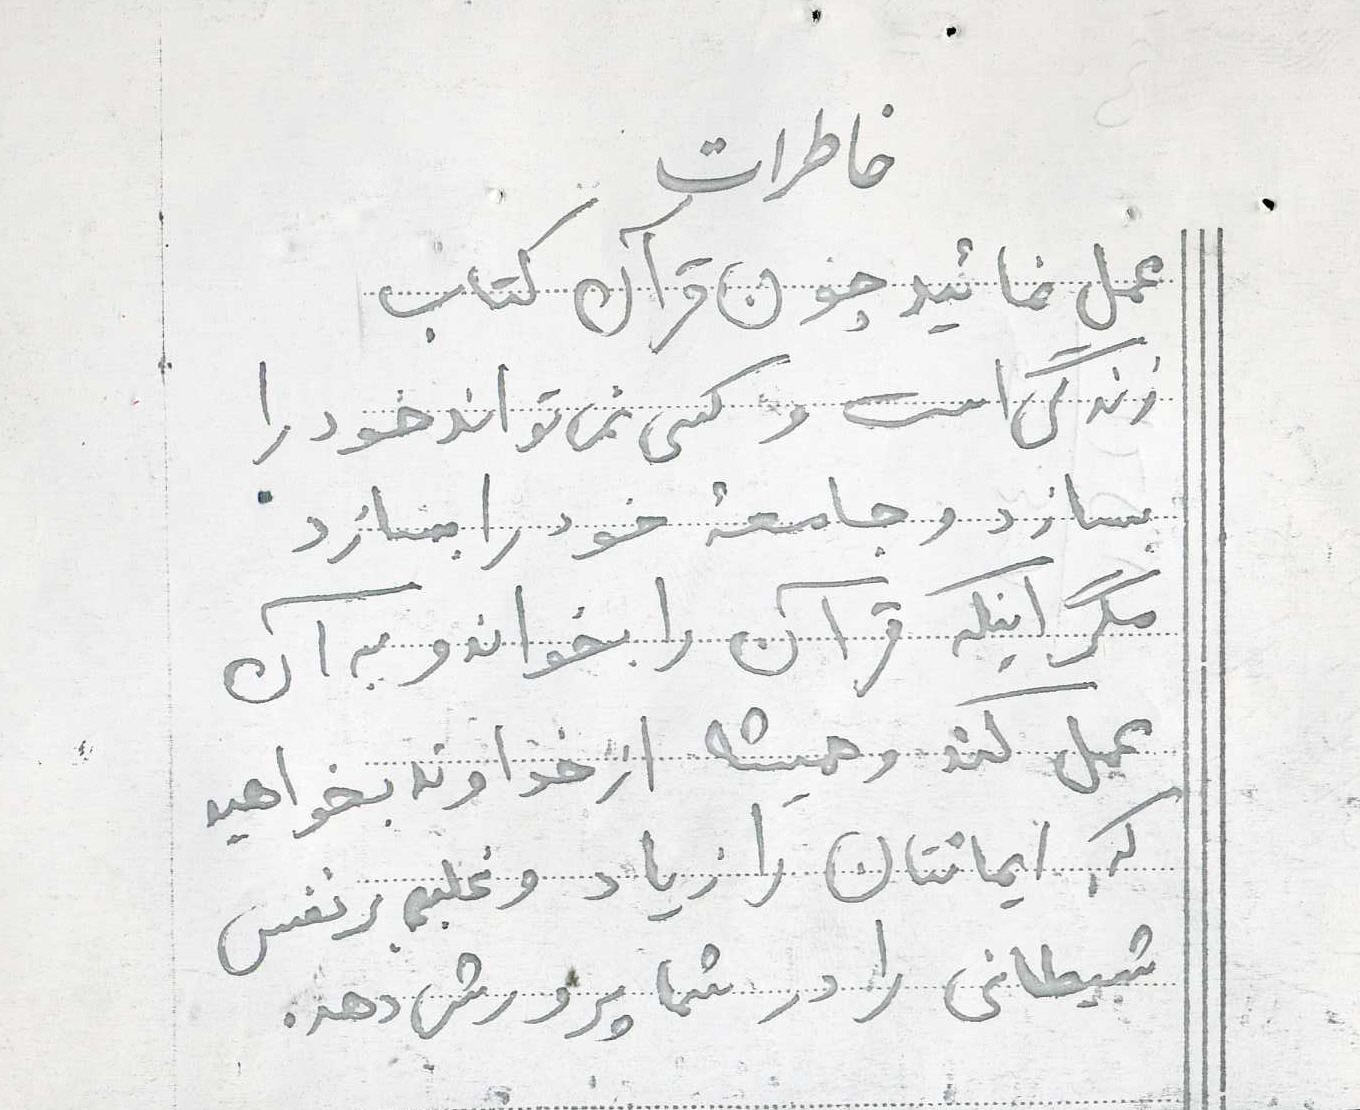 خاطرات
عمل نمائید چون قرآن کتاب
زندگی است و کسی نمی تواند خود را
بسازد و جامعهٔ خود را بسازد
مگر اینکه قرآن را بخواند و به آن
عمل کند و همیشه از خداوند بخواهید
که ایمانتان را زیاد و غلبه بر نفس
شیطانی را در شما پرورش دهد.